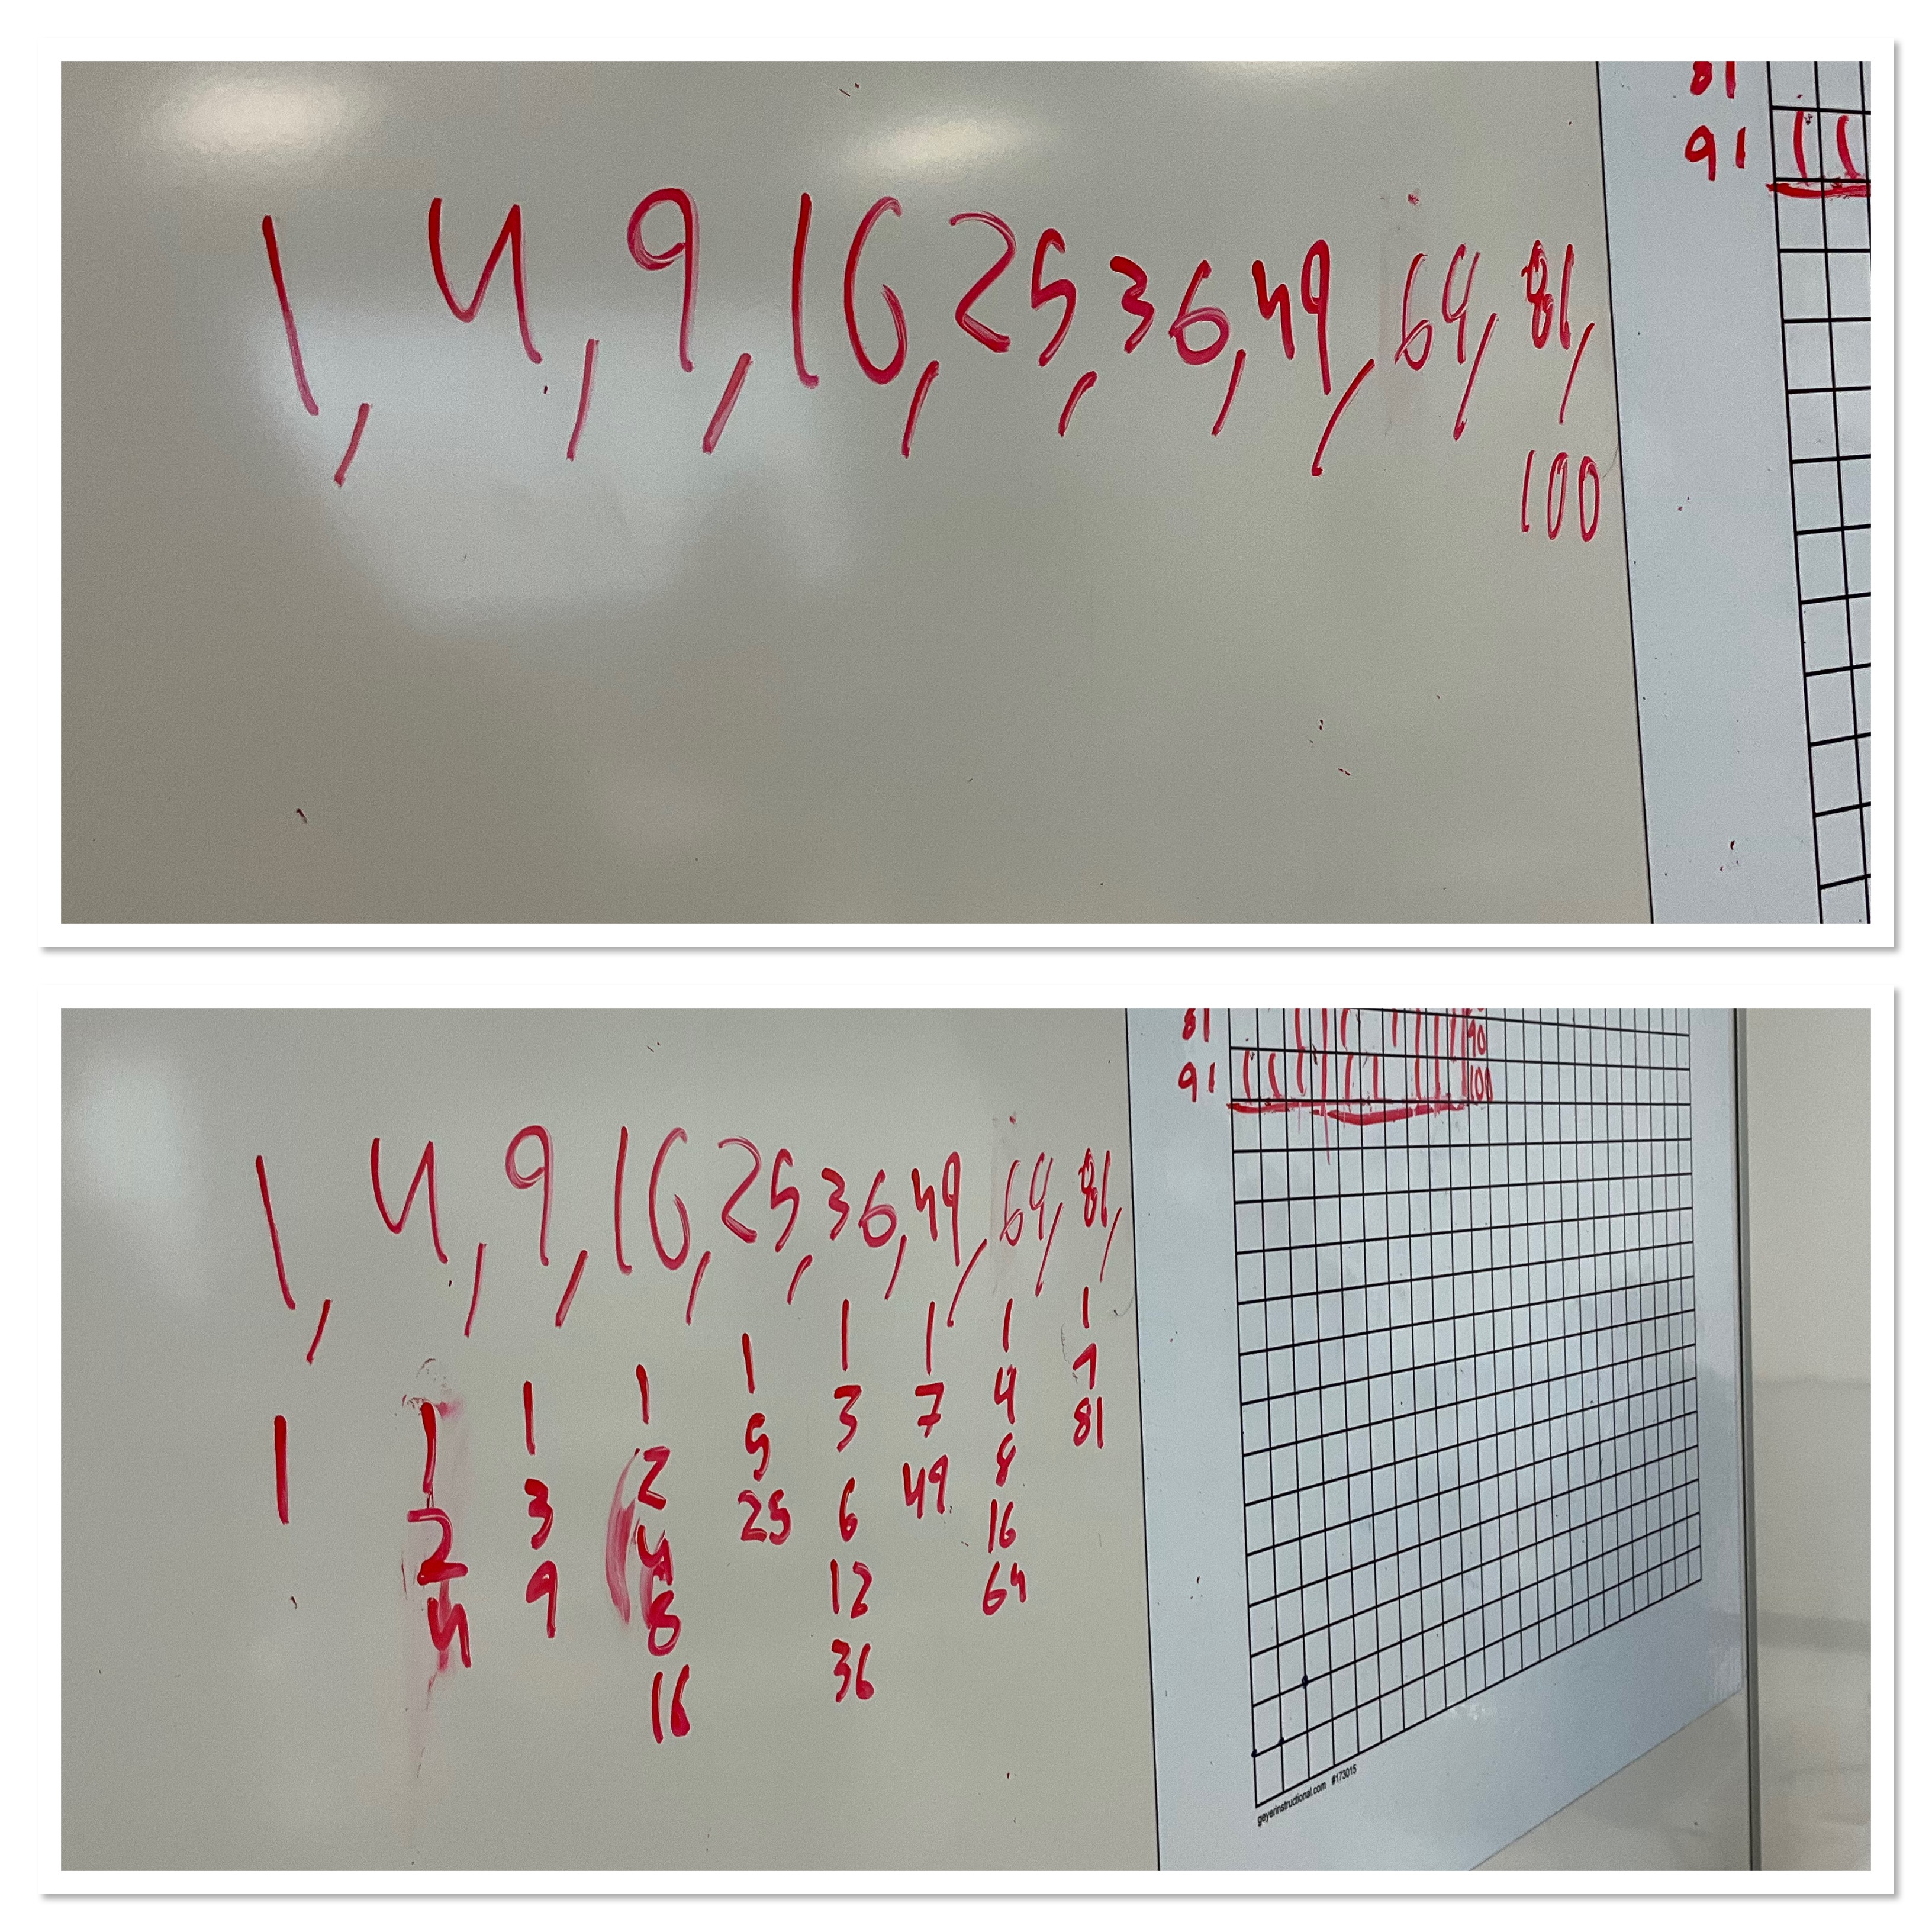 81
91
1, 4, 9, 16, 25, 36, 49, 64, 81,
100
81 90
91 100
1, 4, 9, 16, 25, 36, 49, 64, 81,
1 1 1 1 1 1 1 1 1
2 3 2 5 3 7 4 9
4 9 4 25 6 49 8 81
8 12 16
16 36 64
geyerinstructional.com #173015